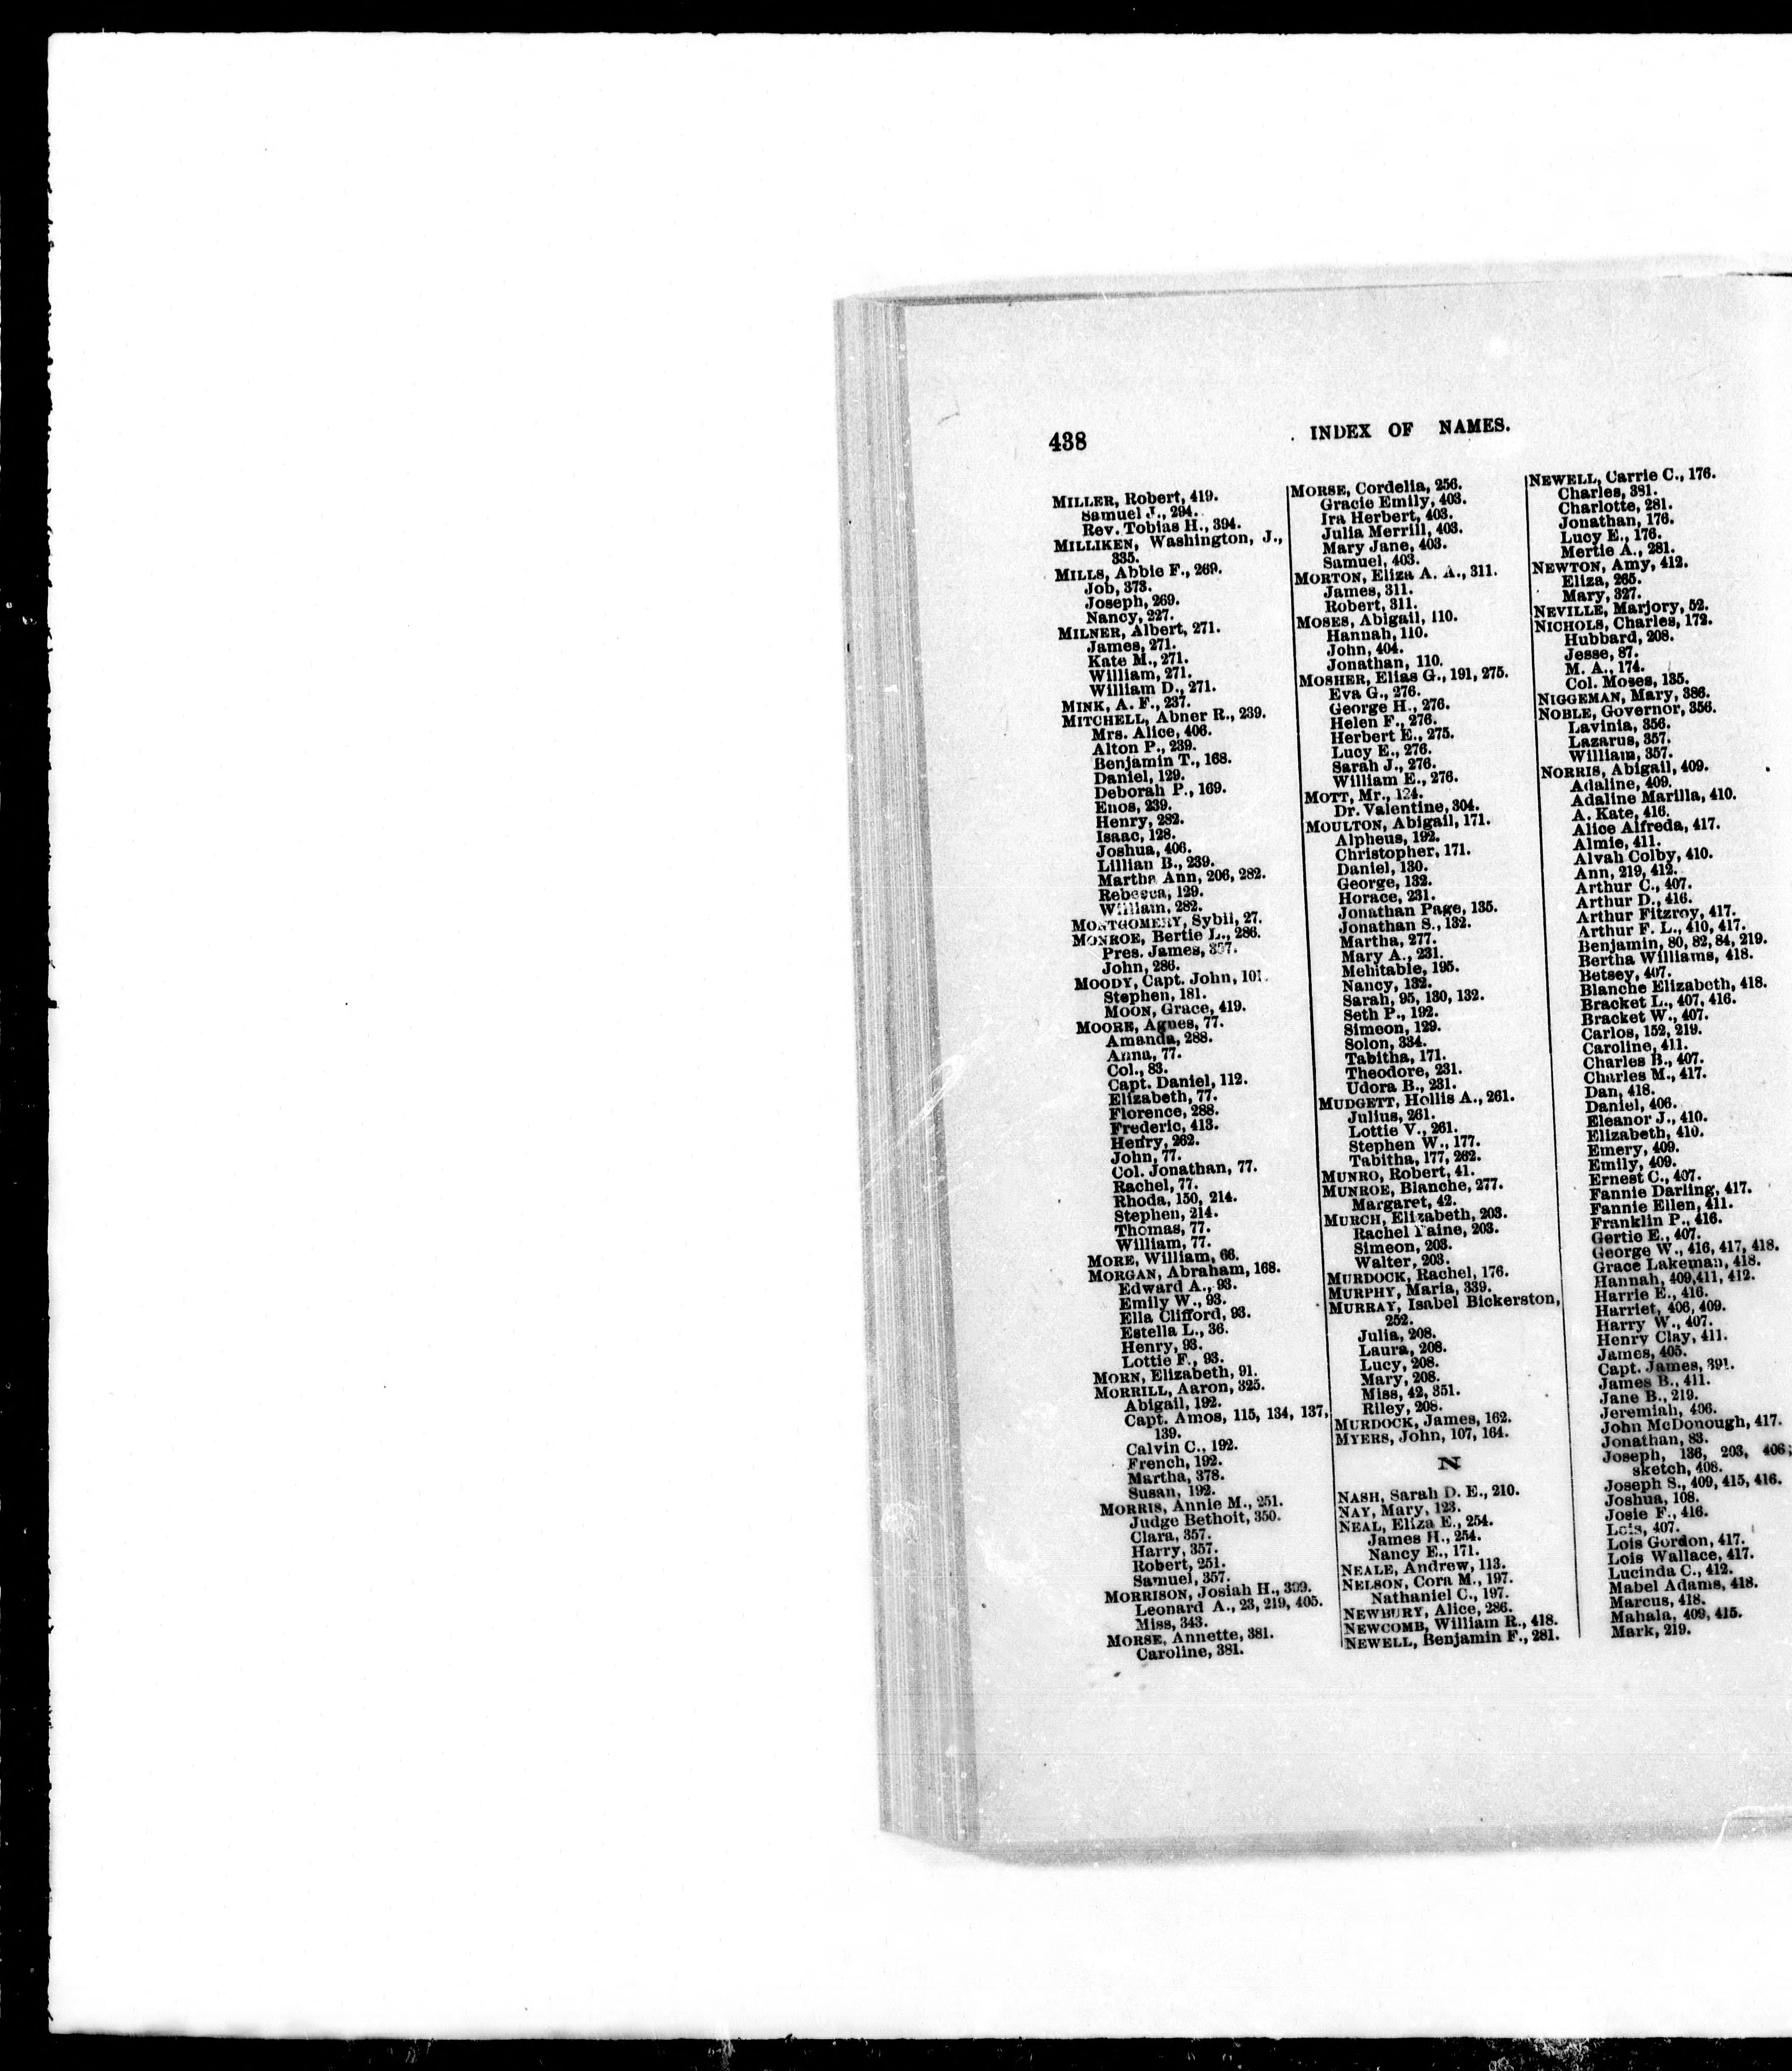 438
INDEX OF NAMES.
MILLER, Robert, 419.
Samuel J., 294.
Rev. Tobias H., 394.
MILLIKEN, Washington, J.,
335.
MILLS, Abbie F., 269.
Job, 373.
Joseph, 269.
Nancy, 227.
MILNER, Albert, 271.
James, 271.
Kate M., 271.
William, 271.
William D., 271.
MINK, A. F., 237.
MITCHELL, Abner R., 239.
Mrs. Alice, 406.
Alton P., 239.
Benjamin T., 168.
Daniel, 129.
Deborah P., 169.
Enos, 239.
Henry, 282.
Isaac, 128.
Joshua, 406.
Lillian B., 239.
Martha Ann, 206, 282.
Rebecca, 129.
William, 282.
MONTGOMERY, Sybil, 27.
MONROE, Bertie L., 286.
Pres. James, 357.
John, 286.
MOODY, Capt. John, 101.
Stephen, 181.
MOON, Grace, 419.
MOORE, Agnes, 77.
Amanda, 288.
Anna, 77.
Col., 83.
Capt. Daniel, 112.
Elizabeth, 77.
Florence, 288.
Frederic, 413.
Henry, 262.
John, 77.
Col. Jonathan, 77.
Rachel, 77.
Rhoda, 150, 214.
Stephen, 214.
Thomas, 77.
William, 77.
MORE, William, 66.
MORGAN, Abraham, 168.
Edward A., 93.
Emily W., 93.
Ella Clifford, 93.
Estella L., 36.
Henry, 93.
Lottie F., 93.
MORN, Elizabeth, 91.
MORRILL, Aaron, 325.
Abigail, 192.
Capt. Amos, 115, 134, 137,
139.
Calvin C., 192.
French, 192.
Martha, 378.
Susan, 192.
MORRIS, Annie M., 251.
Judge Bethoit, 350.
Clara, 357.
Harry, 357.
Robert, 251.
Samuel, 357.
MORRISON, Josiah H., 399.
Leonard A., 23, 219, 405.
Miss, 343.
MORSE, Annette, 381.
Caroline, 381.
MORSE, Cordelia, 256.
Gracie Emily, 403.
Ira Herbert, 403.
Julia Merrill, 403.
Mary Jane, 403.
Samuel, 403.
MORTON, Eliza A. A., 311.
James, 311.
Robert, 311.
MOSES, Abigail, 110.
Hannah, 110.
John, 404.
Jonathan, 110.
MOSHER, Elias G., 191, 275.
Eva G., 276.
George H., 276.
Helen F., 276.
Herbert E., 275.
Lucy E., 276.
Sarah J., 276.
William E., 276.
MOTT, Mr., 124.
Dr. Valentine, 304.
MOULTON, Abigail, 171.
Alpheus, 192.
Christopher, 171.
Daniel, 130.
George, 132.
Horace, 231.
Jonathan Page, 135.
Jonathan S., 132.
Martha, 277.
Mary A., 231.
Mehitable, 195.
Nancy, 132.
Sarah, 95, 130, 132.
Seth P., 192.
Simeon, 129.
Solon, 334.
Tabitha, 171.
Theodore, 231.
Udora B., 231.
MUDGETT, Hollis A., 261.
Julius, 261.
Lottie V., 261.
Stephen W., 177.
Tabitha, 177, 262.
MUNRO, Robert, 41.
MUNROE, Blanche, 277.
Margaret, 42.
MURCH, Elizabeth, 203.
Rachel Paine, 203.
Simeon, 203.
Walter, 203.
MURDOCK, Rachel, 176.
MURPHY, Maria, 339.
MURRAY, Isabel Bickerston,
252.
Julia, 208.
Laura, 208.
Lucy, 208.
Mary, 208.
Miss, 42, 351.
Riley, 208.
MURDOCK, James, 162.
MYERS, John, 107, 164.
N
NASH, Sarah D. E., 210.
NAY, Mary, 123.
NEAL, Eliza E., 254.
James H., 254.
Nancy E., 171.
NEALE, Andrew, 113.
NELSON, Cora M., 197.
Nathaniel C., 197.
NEWBURY, Alice, 286.
NEWCOMB, William R., 418.
NEWELL, Benjamin F., 281.
NEWELL, Carrie C., 176.
Charles, 381.
Charlotte, 281.
Jonathan, 176.
Lucy E., 176.
Mertie A., 281.
NEWTON, Amy, 412.
Eliza, 265.
Mary, 327.
NEVILLE, Marjory, 52.
NICHOLS, Charles, 172.
Hubbard, 208.
Jesse, 87.
M. A., 174.
Col. Moses, 135.
NIGGEMAN, Mary, 386.
NOBLE, Governor, 356.
Lavinia, 356.
Lazarus, 357.
William, 357.
NORRIS, Abigail, 409.
Adaline, 409.
Adaline Marilla, 410.
A. Kate, 416.
Alice Alfreda, 417.
Almie, 411.
Alvah Colby, 410.
Ann, 219, 412.
Arthur C., 407.
Arthur D., 416.
Arthur Fitzroy, 417.
Arthur F. L., 410, 417.
Benjamin, 80, 82, 84, 219.
Bertha Williams, 418.
Betsey, 407.
Blanche Elizabeth, 418.
Bracket L., 407, 416.
Bracket W., 407.
Carlos, 152, 219.
Caroline, 411.
Charles B., 407.
Charles M., 417.
Dan, 418.
Daniel, 406.
Eleanor J., 410.
Elizabeth, 410.
Emery, 409.
Emily, 409.
Ernest C., 407.
Fannie Darling, 417.
Fannie Ellen, 411.
Franklin P., 416.
Gertie E., 407.
George W., 416, 417, 418.
Grace Lakeman, 418.
Hannah, 409,411, 412.
Harrie E., 416.
Harriet, 406, 409.
Harry W., 407.
Henry Clay, 411.
James, 405.
Capt. James, 391.
James B., 411.
Jane B., 219.
Jeremiah, 406.
John McDonough, 417.
Jonathan, 83.
Joseph, 136, 203, 406;
sketch, 408.
Joseph S., 409, 415, 416.
Joshua, 108.
Josie F., 416.
Lois, 407.
Lois Gordon, 417.
Lois Wallace, 417.
Lucinda C., 412.
Mabel Adams, 418.
Marcus, 418.
Mahala, 409, 415.
Mark, 219.